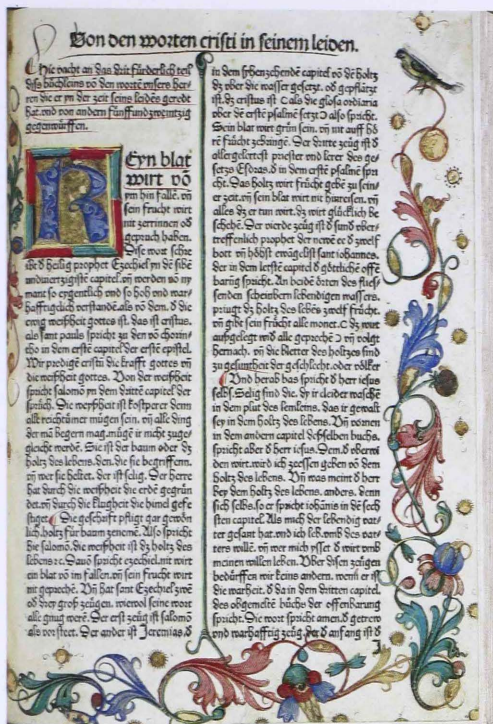 Von den worten cristi in seinem leiden.
Hie vacht an das drit fürderlich teil
diß büchleins võ den wortẽ vnsers her-
ren die er yn der zeit seins leidẽs geredt
hat.vnd von andern fünffundzwentzig
gegenwürffen.
R
Eyn blat
wirt võ
ym hin fallẽ. vñ
sein frucht wirt
nit zerrinnen od
geprech haben.
Dise wort schrei
bt d heilig prophet Ezechiel ym dẽ sibẽ
undvierzigiste capitel. vñ werden võ ny
mant so eygentlich vnd so hoh vnd war-
hafftiglich verstandẽ. als võ dem. d die
ewig weißheit gottes ist. das ist cristus.
als sant pauls spricht zu den võ chorin-
tho in dem erstẽ capitel der erstẽ epistel.
Wir predigẽ cristũ die krafft gottes vñ
die weißheit gottes. Von der weißheit
spricht salomõ yn dem drittẽ capitel der
sprüch. Die weyßheit ist kostperer denn
alle reichtümer mügen sein. vñ alle ding
der mã begern mag. mügẽ ir nicht zuge-
gleicht werdẽ. Sie ist der baum oder dz
holtz des lebens. den. die sie begriffenn.
vñ wer sie heltet. der ist selig. Der herre
hat durch die weißheit die erdẽ gegrün
det. vñ durch die klugheit die himel gefe
stiget. Die geschrifft pfligt gar gewõn
lich. holtz für baum zenemẽ. Also spricht
hie salomõ. die weißheit ist dz holtz des
lebens ec. Davõ spricht ezechiel. nit wirt
ein blat võ im fallen. vñ sein frucht wirt
nit geprechẽ. Vñ hat sant Ezechiel zwẽ
od drey groß zeügen. wiewol seine wort
alle gnug werẽ. Der erst zeüg ist salomõ
als vorsteet. Der ander ist Jeremias. d
in dem sybenzehendẽ capitel võ dẽ holtz
dz vber die wasser gesetzt. od gepflãtzt
ist. dz cristus ist als die glosa ordiaria
vber dẽ erstẽ psalmẽ setzt also spricht.
Sein blat wirt grün sein. vñ nit auff hö
rẽ frücht zebringẽ. Der dritte zeüg ist d
allergelertest priester vnd lerer des ge-
setzs Esdras. d in dem erstẽ psalmẽ spri
cht. Das holtz wirt frücht gebẽ zu sein-
er zeit. vñ sein blat wirt nit hinreisen. vñ
alles dz er tun wirt. dz wirt glücklich be
schehẽ. Der vierde zeüg ist d sund vber-
treffenlich prophet der newẽ ee d zwelf
bott vñ höhst ewãgelist sant iohannes.
der in dem lerstẽ capitel d götlichẽ offẽ
barũg spricht. An beidẽ örten des flies-
senden scheinbern lebendigen wassers.
pringt dz holtz des lebẽs zwelf frücht.
vñ gibt sein frücht alle monet. dz wirt
außgelegt vñ alle geprechẽ vñ volgt
hernach. vñ die bletter des holtzes sind
zu gesuntheit der geschlecht. oder völker
Vnd herab bas spricht d herr iesus
selbs. Selig sind die. dy ir cleider waschẽ
in dem plut des lemleins. das ir gewalt
sey in dem holtz des lebens. Vñ vornen
in dem andern capitel desselben buchs.
spricht aber d herr iesus. Dem. d oberwi
den wirt. wird ich zeessen geben võ dem
holtz des lebens. Vñ was meint d herr
bey dem holtz des lebens. anders. denn
sich selbs. so er spricht iohãnis in dẽ sech
sten capitel. Als mich der lebendig vat-
ter gesant hat. vnd ich leb. vmb des vat-
ters willẽ. vñ wer mich ysset d wirt vmb
meinen willen leben. Vber disen zeügen
bedürffen wir keins andern. wenn er ist
die warheit. d da in dem dritten capitel
des obgemeltẽ büchs der offenbarung
spricht. Die wort spricht amen. d getrew
vnd warhafftig zeüg. der d anfang ist d